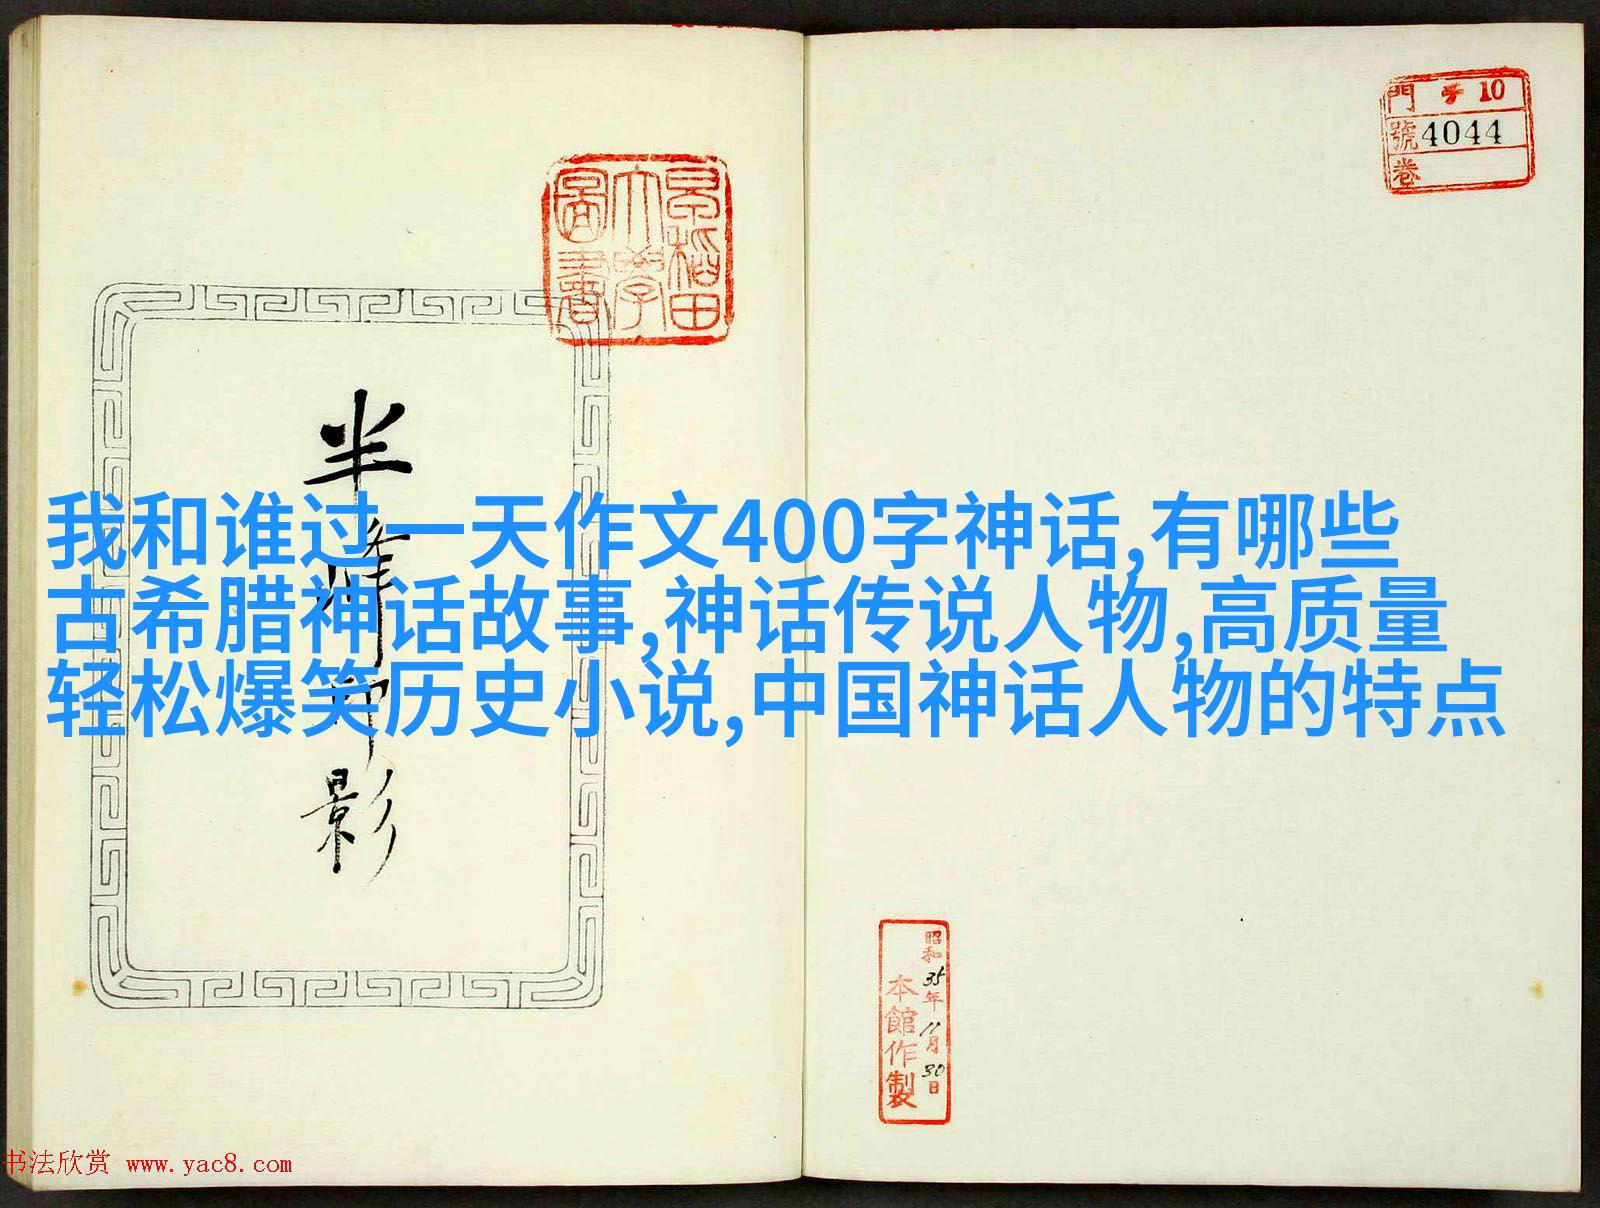 門 10
號 4044
卷
早稻田
大學
圖書
半峰印影
我和谁过一天作文400字神话,有哪些
古希腊神话故事,神话传说人物,高质量
轻松爆笑历史小说,中国神话人物的特点
昭和35年11月30日
本館作製
书法欣赏 www.yac8.com